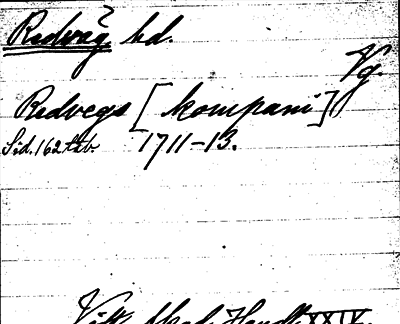 Redväg, hd.
Vg.
Redvegs [kompani]
Sid. 162 tab. 1711-13.
Vitt. Akad. Handl. XXIX